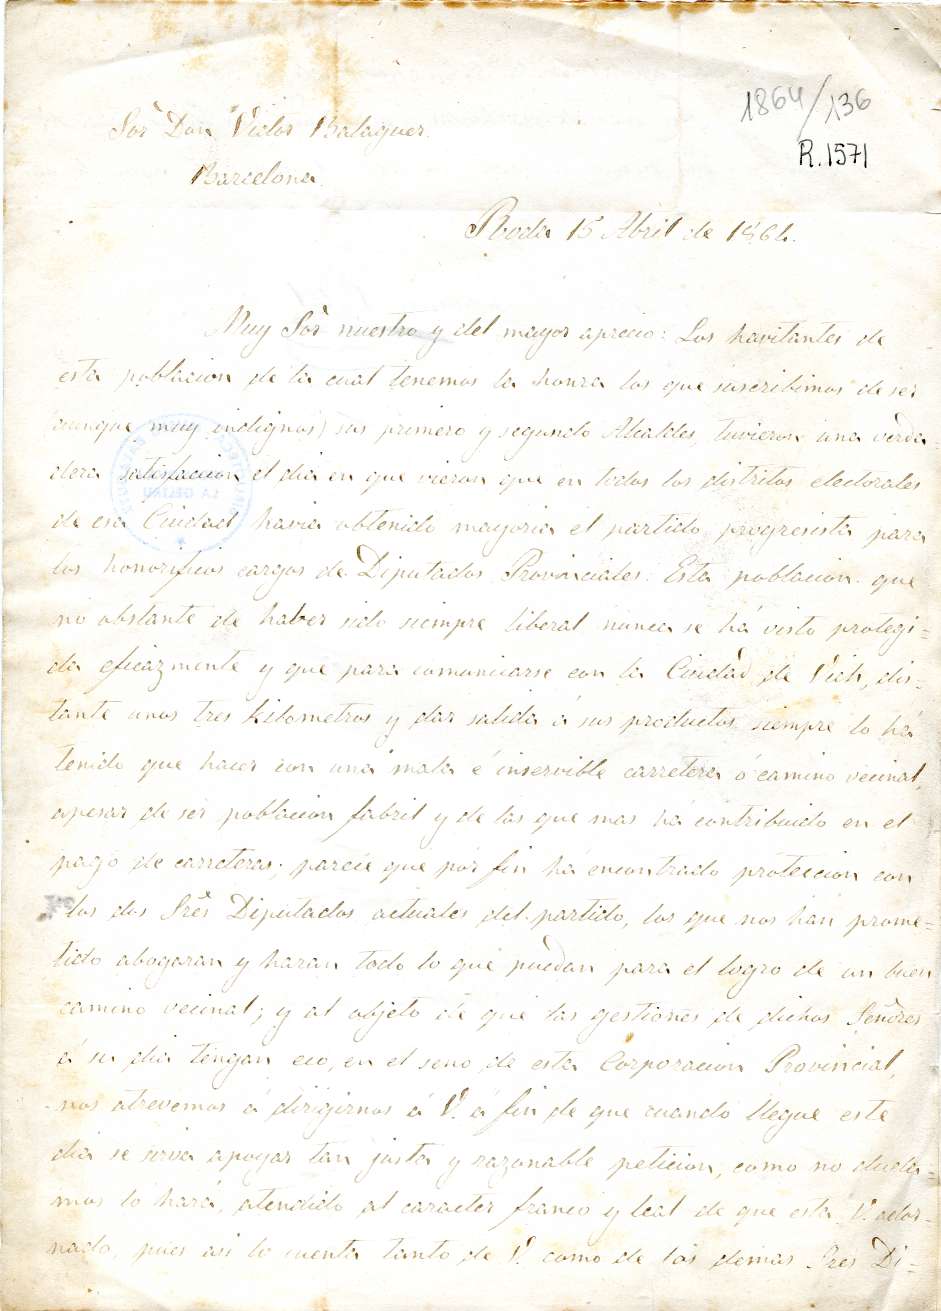 1864/136
R.1571
Sor Don Victor Balaguer.
Barcelona.
Roda 15 Abril de 1864.
Muy Sor nuestro y del mayor aprecio: Los havitantes de
esta poblacion de la cual tenemos la honra los que suscribimos de ser
(aunque muy indignos) sus primero y segundo Alcaldes, tuvieron una verda-
dera satisfaccion el dia en que vieron que en todos los distritos electorales
de esa Ciudad havia obtenido mayoria el partido progresista para
los honorificos cargos de Diputados Provinciales. Esta poblacion que
no obstante de haber sido siempre liberal nunca se há visto protegi-
da eficazmente y que para comunicarse con la Ciudad de Vich, dis-
tante unos tres kilometros y dar salida á sus productos siempre lo há
tenido que hacer con una mala é inservible carretera ó camino vecinal,
apesar de ser poblacion fabril y de las que mas há contribuido en el
pago de carreteras; parece que por fin há encontrado proteccion con
los dos Sres Diputados actuales del partido, los que nos han prome-
tido abogaran y haran todo lo que puedan para el logro de un buen
camino vecinal; y al objeto de que las gestiones de dichos Señores
á su dia tengan eco, en el seno de esta Corporacion Provincial,
nos atrevemos á dirigirnos á V. á fin de que cuando llegue este
dia se sirva apoyar tan justa y razonable peticion, como no duda-
mos lo hará, atendido al caracter franco y leal de que esta V. ador-
nado, pues asi lo cuenta tanto de V. como de los demas Sres Di-